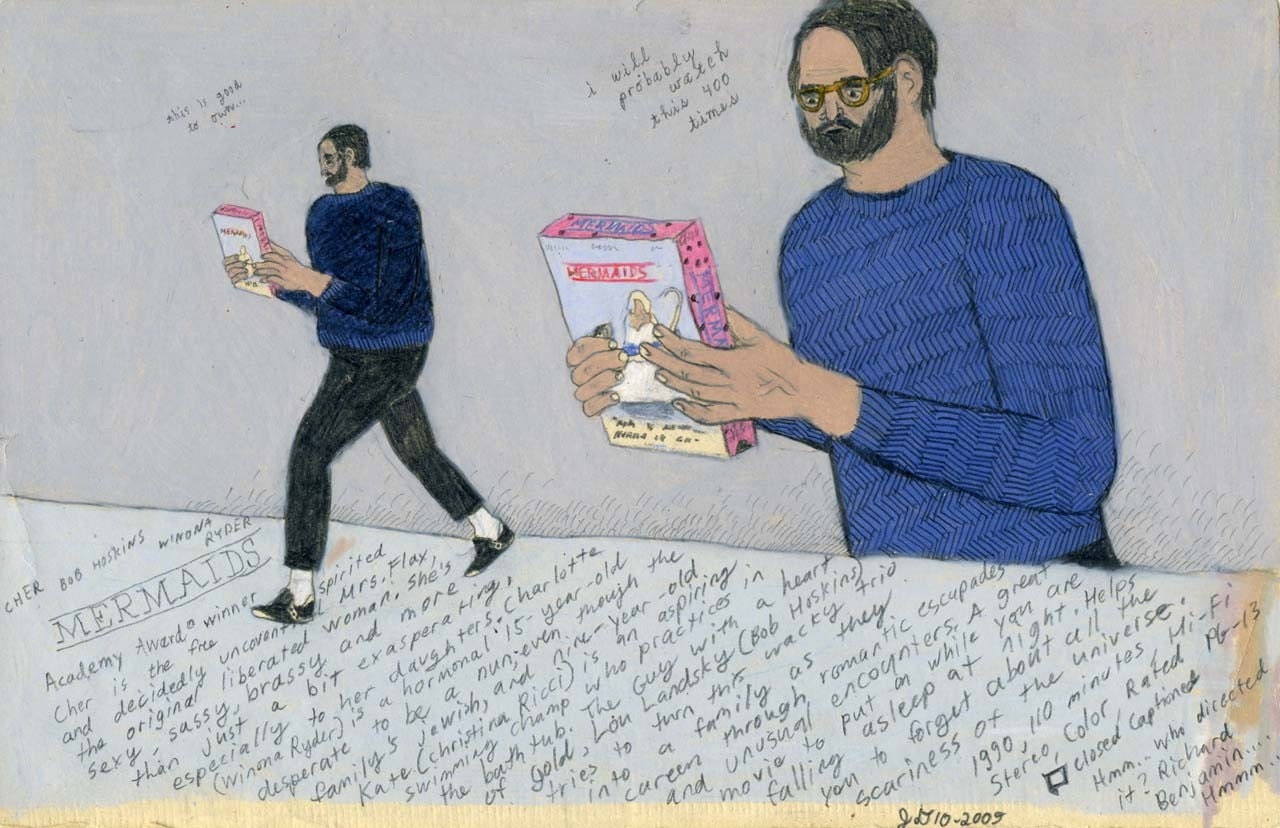 this is good
to own...
i will
probably
watch
this 400
times
MERMAIDS
MERMAIDS
MERMAIDS
CHER BOB HOSKINS WINONA
RYDER
MERMAIDS
Academy Award® winner
Cher is the free spirited
and decidedly unconvent L Mrs. Flax,
the original liberated woman. She's
sexy, sassy, brassy and more
than just a bit exasperating,
especially to her daughters. Charlotte
(Winona Ryder) is a hormonal 15-year-old
desperate to be a nun, even though the
family's Jewish, and nine-year-old
Kate (Christina Ricci) is an aspiring
swimming champ who practices in
the bathtub. The Guy with a heart
of gold, Lou Landsky (Bob Hoskins)
tries to turn this wacky trio
into a family as they
careen through romantic escapades
and unusual encounters. A great
movie to put on while you are
falling asleep at night. Helps
you to forget about all the
scariness of the universe.
1990, 110 minutes Hi-Fi
Stereo, Color Rated PG-13
closed captioned
Hmm... who directed
it? Richard
Benjamin....
Hmmm...
JD 10-2009